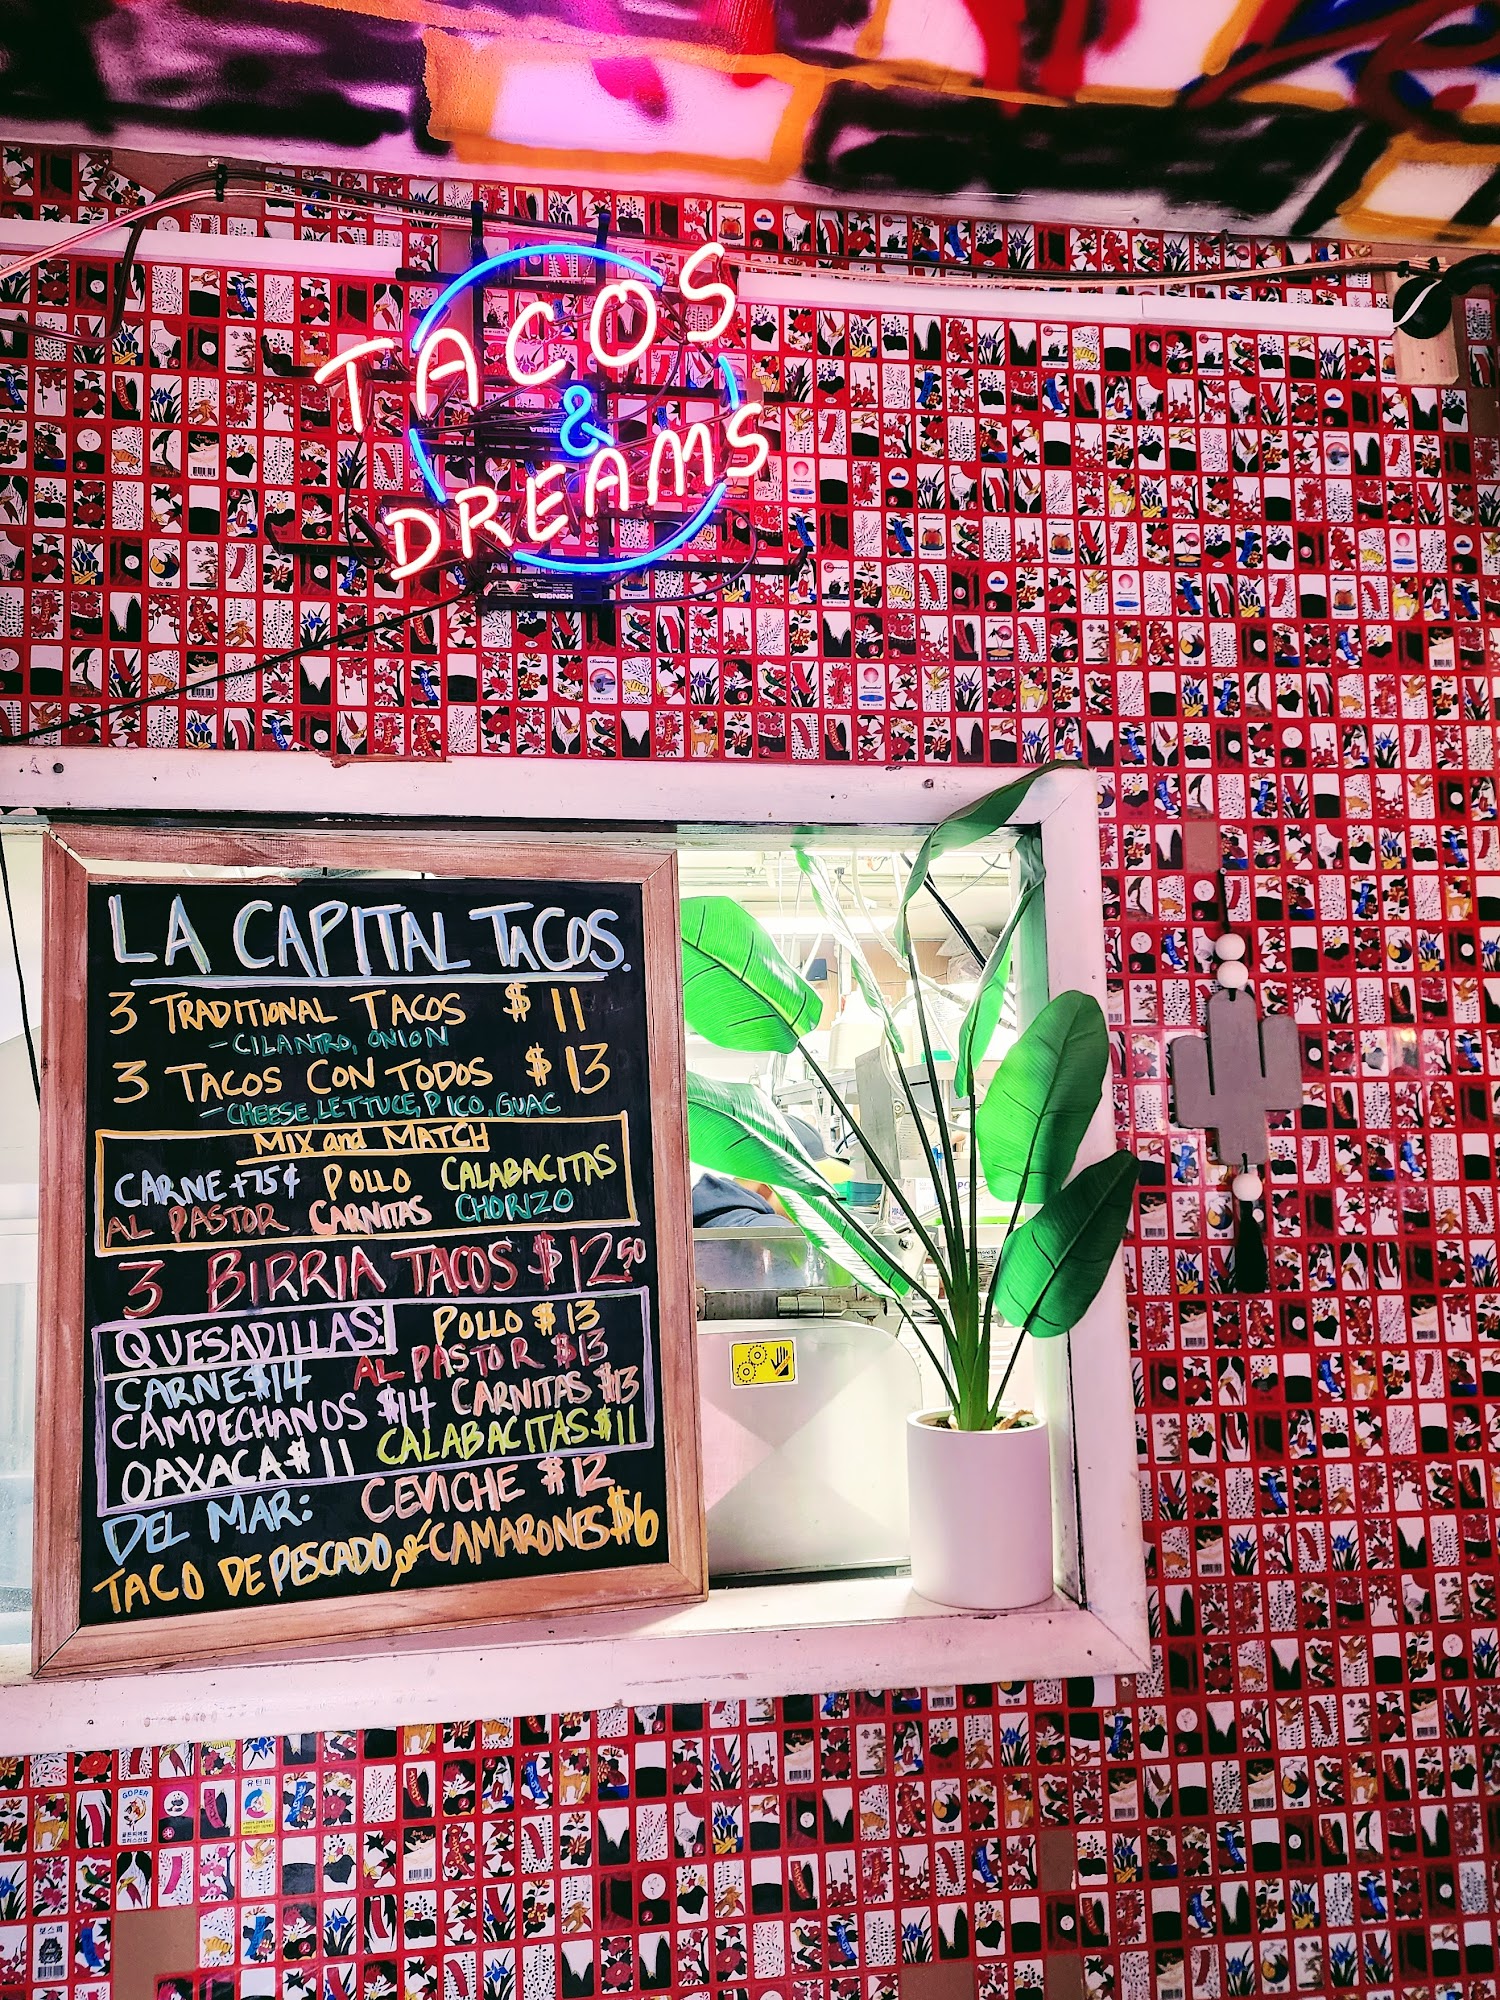 TACOS
&
DREAMS
HONGBA
LA CAPITAL TACOS.
3 TRADITIONAL TACOS $ 11
- CILANTRO, ONION
3 TACOS CON TODOS $ 13
- CHEESE, LETTUCE, PICO, GUAC
MIX and MATCH
CARNE +75¢ POLLO CALABACITAS
AL PASTOR CARNITAS CHORIZO
3 BIRRIA TACOS $12.50
QUESADILLAS: POLLO $13
CARNE $14 AL PASTOR $13
CAMPECHANOS $14 CARNITAS $13
OAXACA $11 CALABACITAS $11
DEL MAR: CEVICHE $12
TACO DE PESCADO or CAMARONES $6